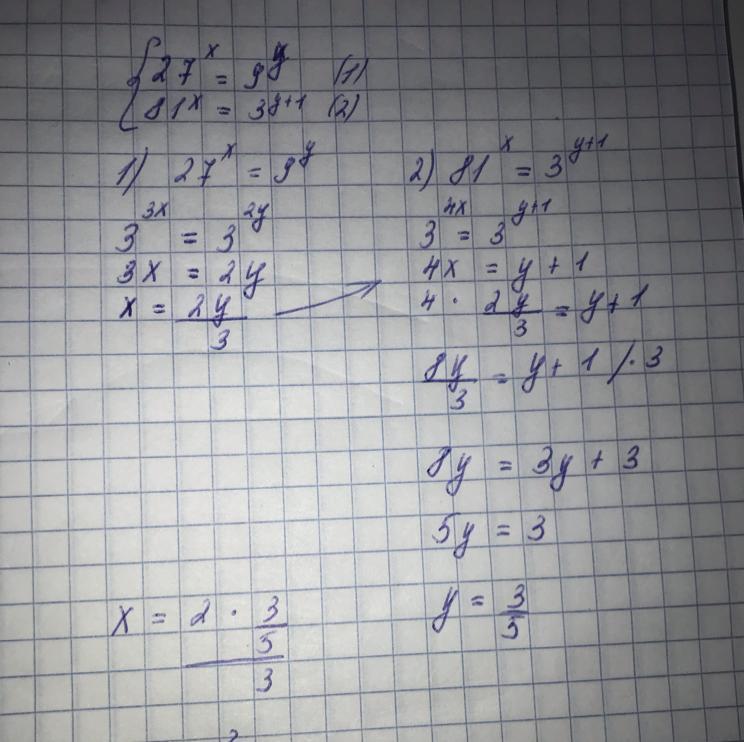 { 27^x = 9^y (1)
81^x = 3^{y+1} (2)
1) 27^x = 9^y
3^{3x} = 3^{2y}
3x = 2y
x = 2y/3
2) 81^x = 3^{y+1}
3^{4x} = 3^{y+1}
4x = y + 1
4 · 2y/3 = y + 1
8y/3 = y + 1 / · 3
8y = 3y + 3
5y = 3
y = 3/5
x = (2 · 3/5)/3